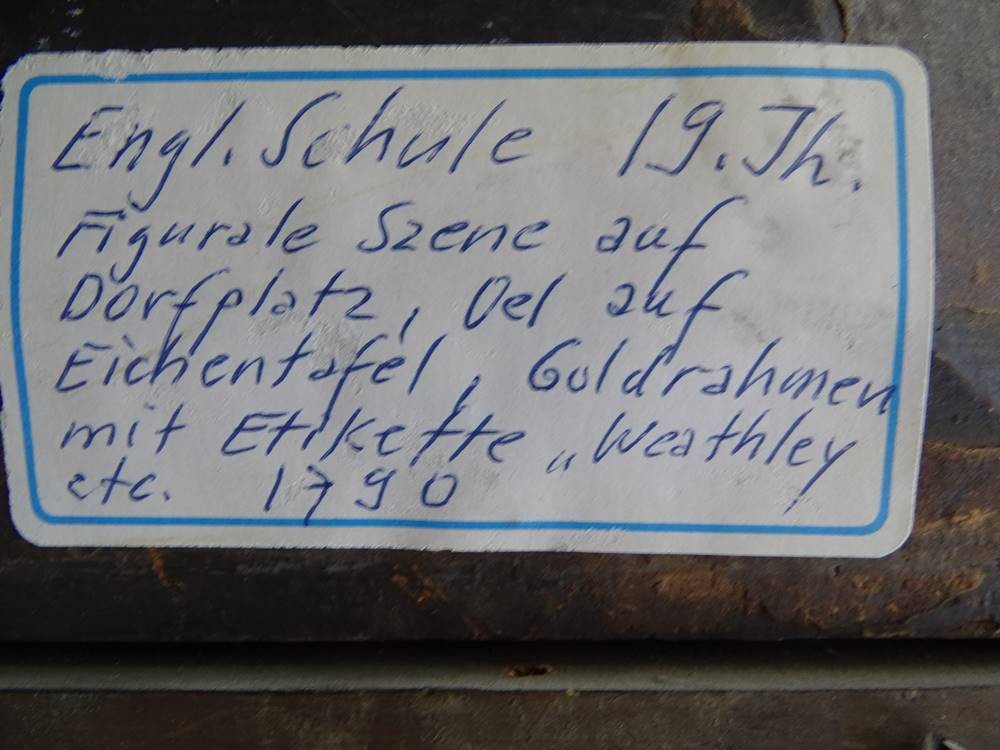 Engl. Schule 19. Jh.
Figurale Szene auf
Dorfplatz, Oel auf
Eichentafel, Goldrahmen
mit Etikette „Weathley
etc. 1790